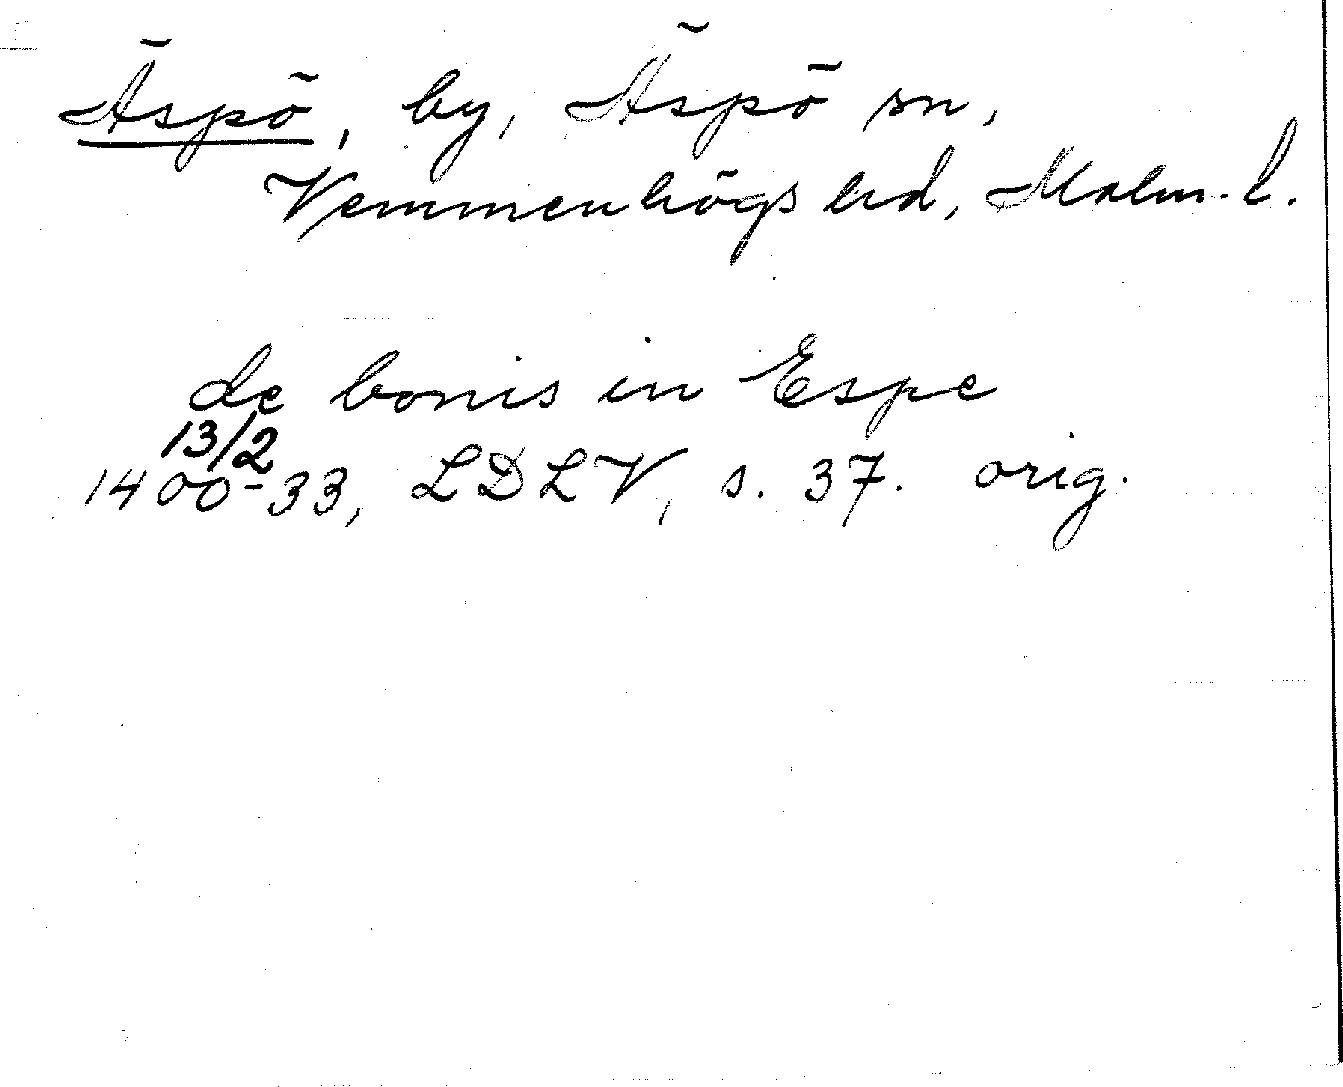 Äspö, by, Äspö sn,
Vemmenhögs hd, Malm. l.
de bonis in Espe
13/2
1400-33, LDLV, s. 37. orig.